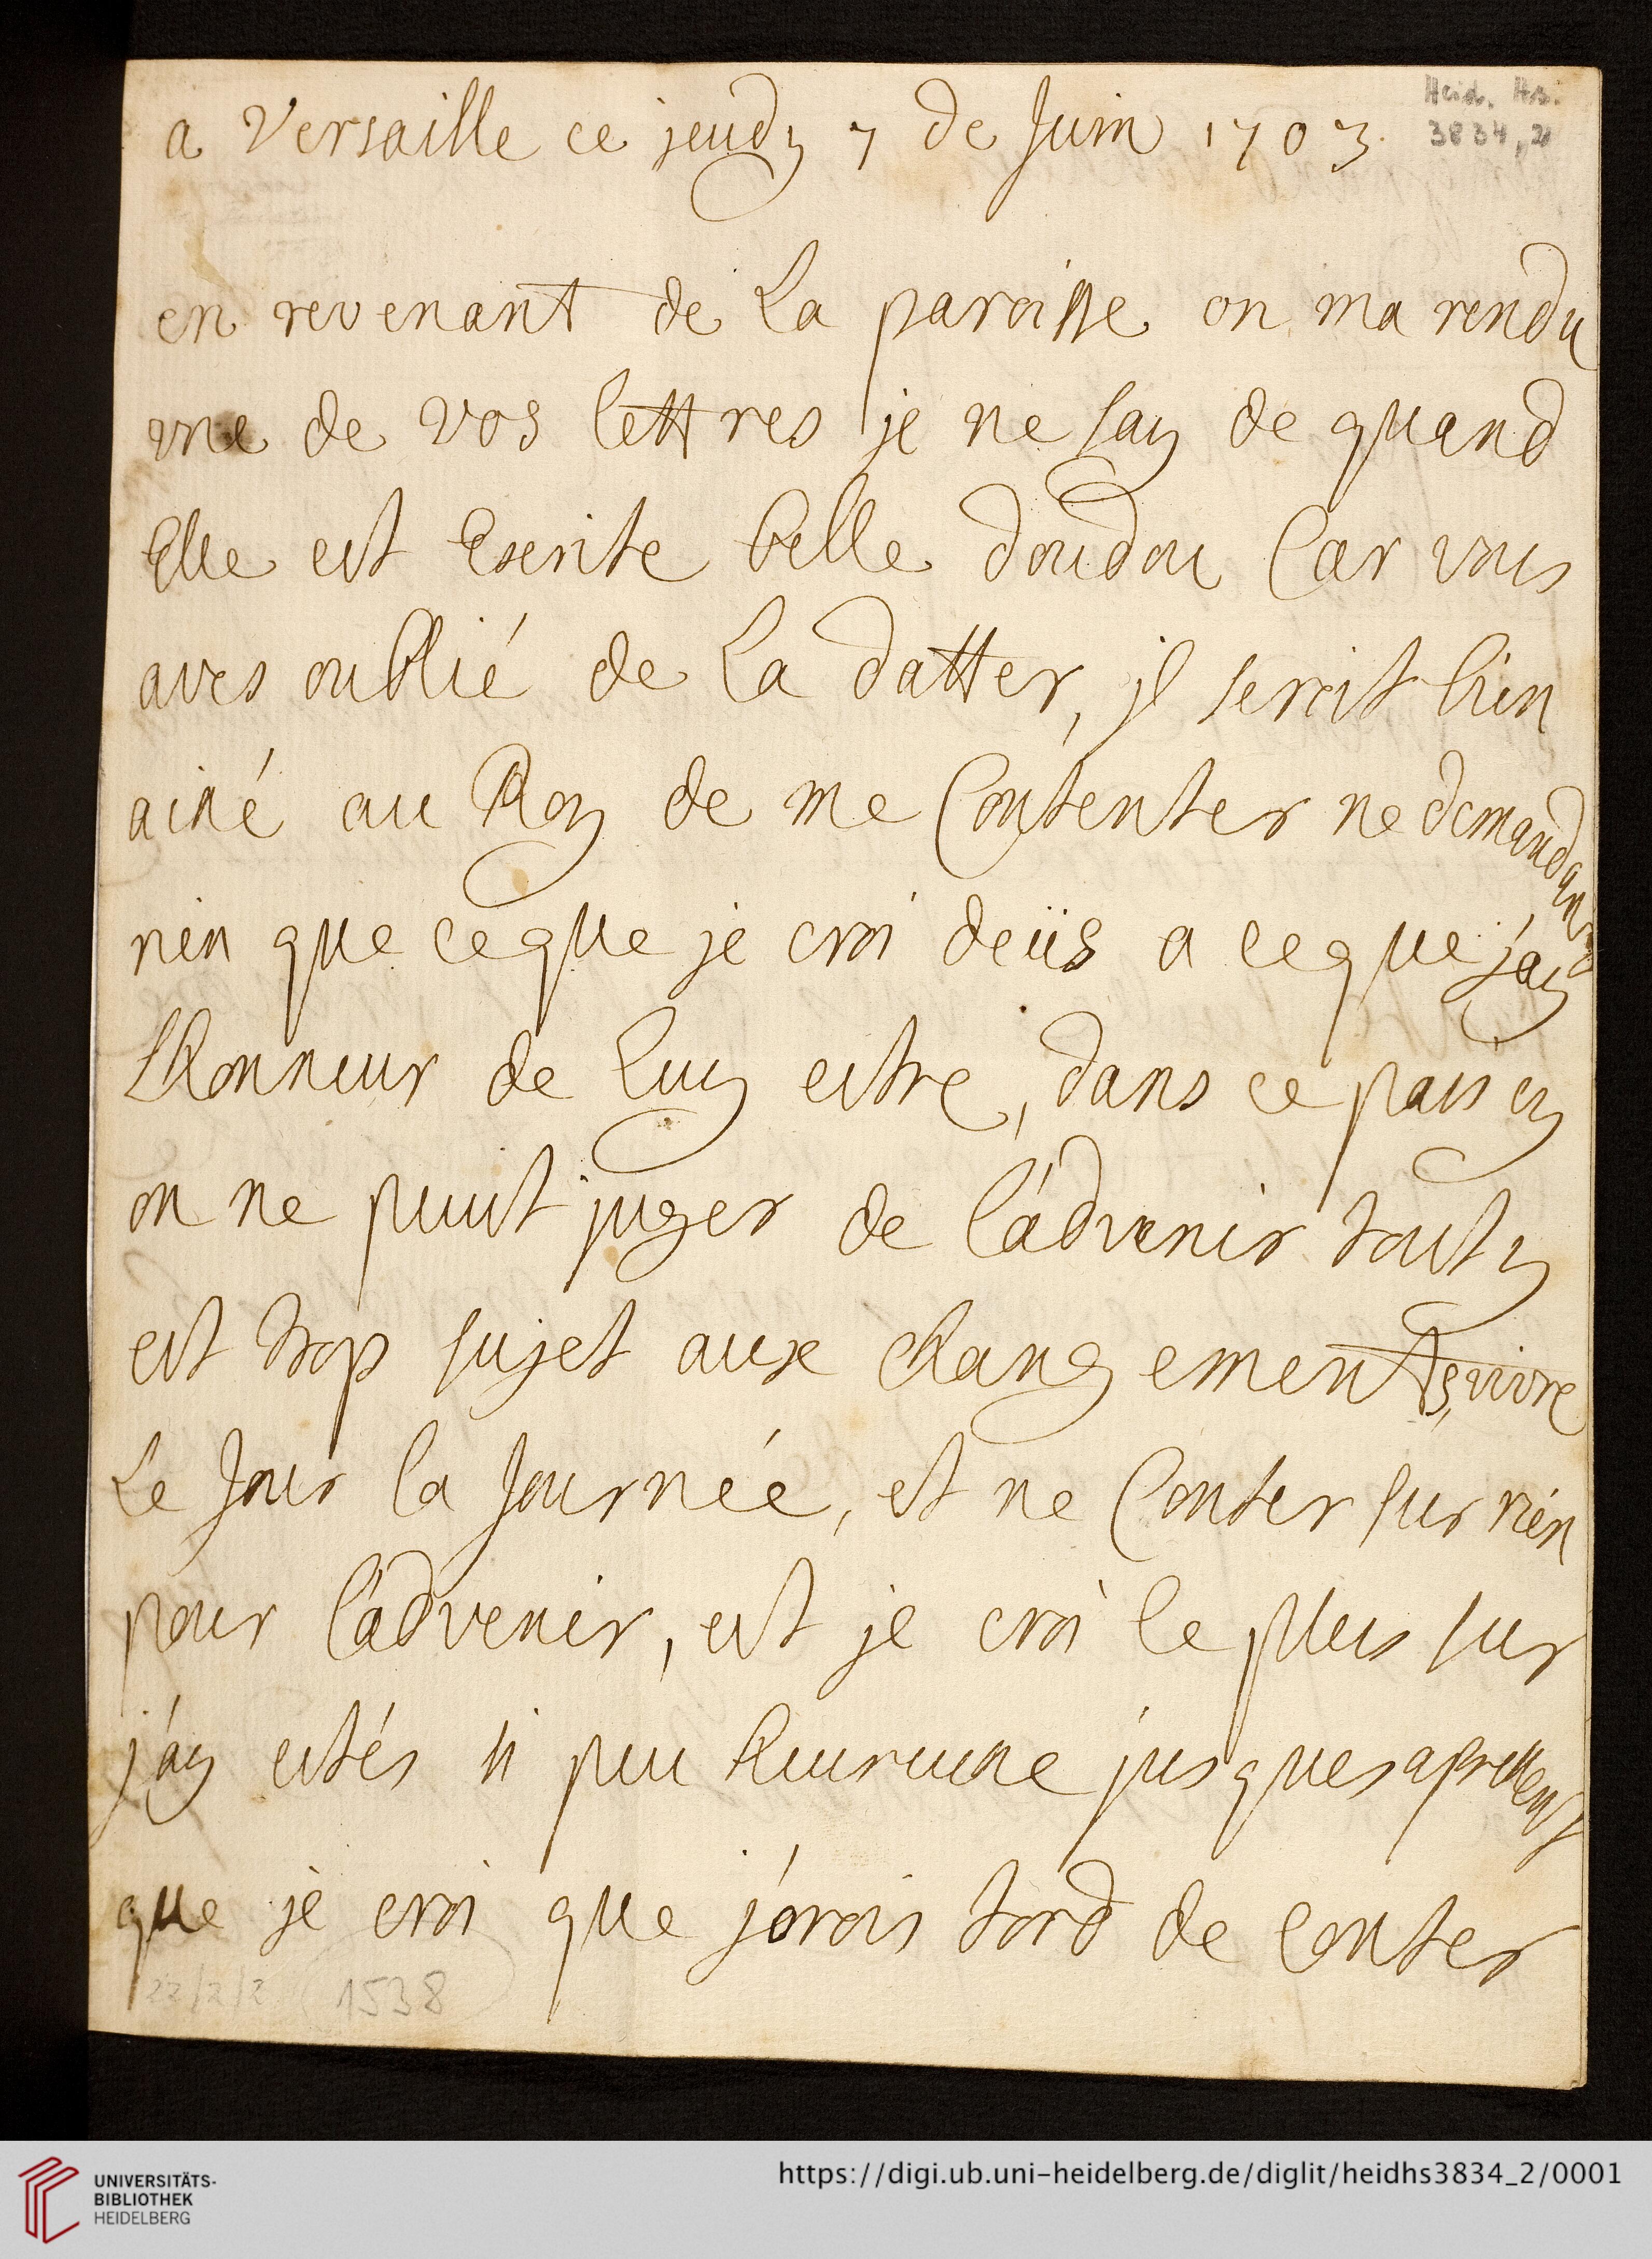 Heid. Hs.
3834,2
a Versaille ce jeudy 7 de Juin 1703
en revenant de La paroisse on ma rendu
une de vos lettres je ne say de quand
Elle est Escrite belle doudou Car vous
aves oublié de La datter, jl seroit bien
aisé au Roy de me Contenter ne demandant
rien que ceque je croi deüs a ceque j'ay
Lhonneur de Luy estre, dans ce pais cy
on ne peust juger de l'advenir tout y
est trop sujet aux changements, vivre
Le Jour la Journée, et ne Conter sur rien
pour l'advenir, est je croi le plus sur
j'ay estés si peu heureuse jusques apressent
que je croi que j'orois tord de conter
22/2/2 1538
UNIVERSITÄTS-
BIBLIOTHEK
HEIDELBERG
https://digi.ub.uni-heidelberg.de/diglit/heidhs3834_2/0001